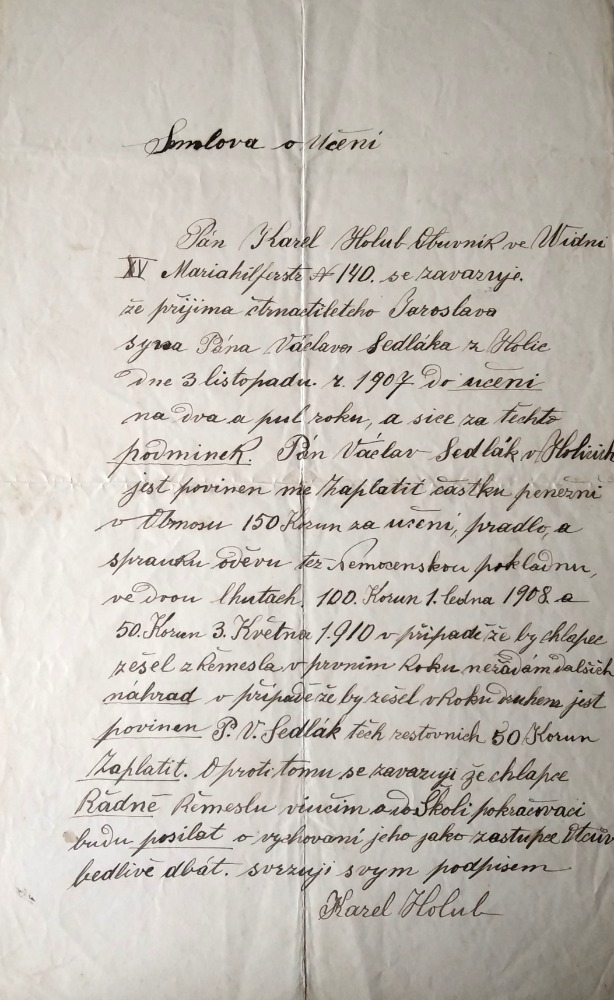 Smlova o Učeni
Pán Karel Holub Obuvník ve Widni
XV Mariahilferstr № 140. se zavazuje.
že přijima čtrnactiletcho Jaroslava
syna Pána Václava Sedláka z Holic
dne 3 listopadu. r. 1907 do učeni
na dva a pul roku, a sice za těchto
podminek. Pán Václav Sedlák v Holicich
jest povinen mě Zaplatit částku peněžní
v Obnosu 150 Korun za učeni, pradlo, a
sprauku oděvu tež Nemocenskou pokladnu,
ve dvou lhutach. 100. Korun 1. ledna 1908 a
50. Korun 3. Května 1.910 v připadě že by chlapec
zešel z řemesla v prvnim Roku nežádám dalšich
náhrad v připadě že by zešel v Roku druhem jest
povinen P. V. Sedlák těch restovnich 50 Korun
Zaplatit. Oproti tomu se zavazuji že chlapce
Řádně Řemeslu viučim a do Školi pokračovaci
budu posilat o vychovaní jeho jako zastupce Otcův
bedlivě dbát. svrzuji svym podpisem
Karel Holub